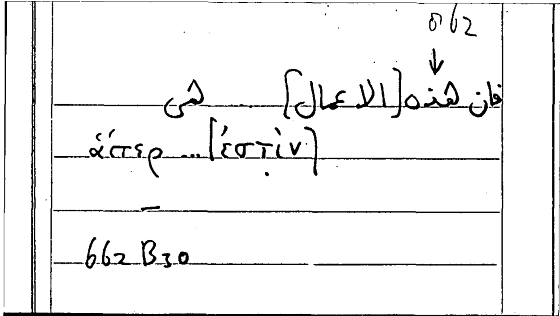 σ62
↓
فان هذه [الاعمال] ... هى
ἅπερ ... [ἐστίν]
—
662 B30